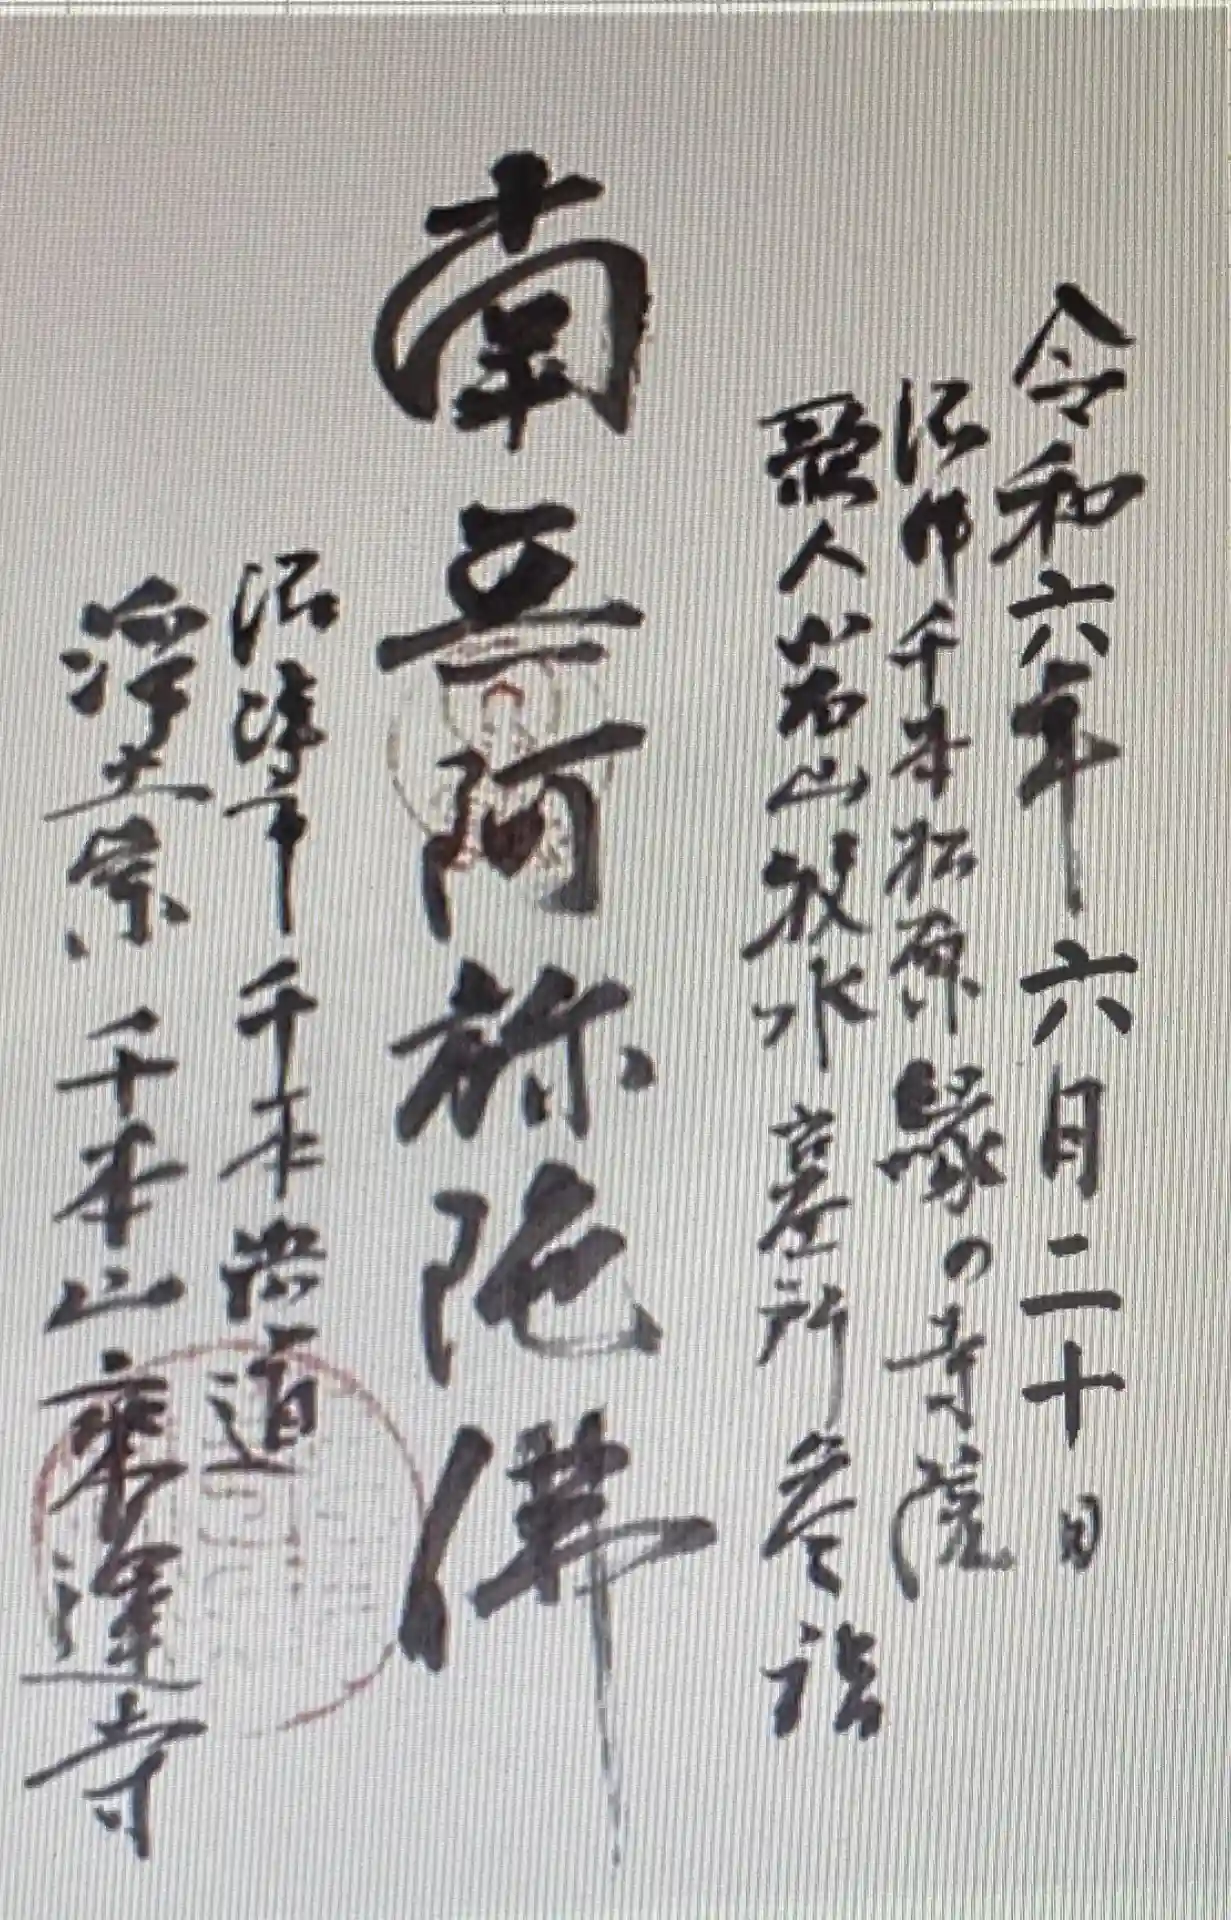 令和六年六月二十日
沼津千本松原縁の寺院
歌人若山牧水墓所参詣
南無阿弥陀佛
沼津市千本道
淨土宗千本山乗運寺